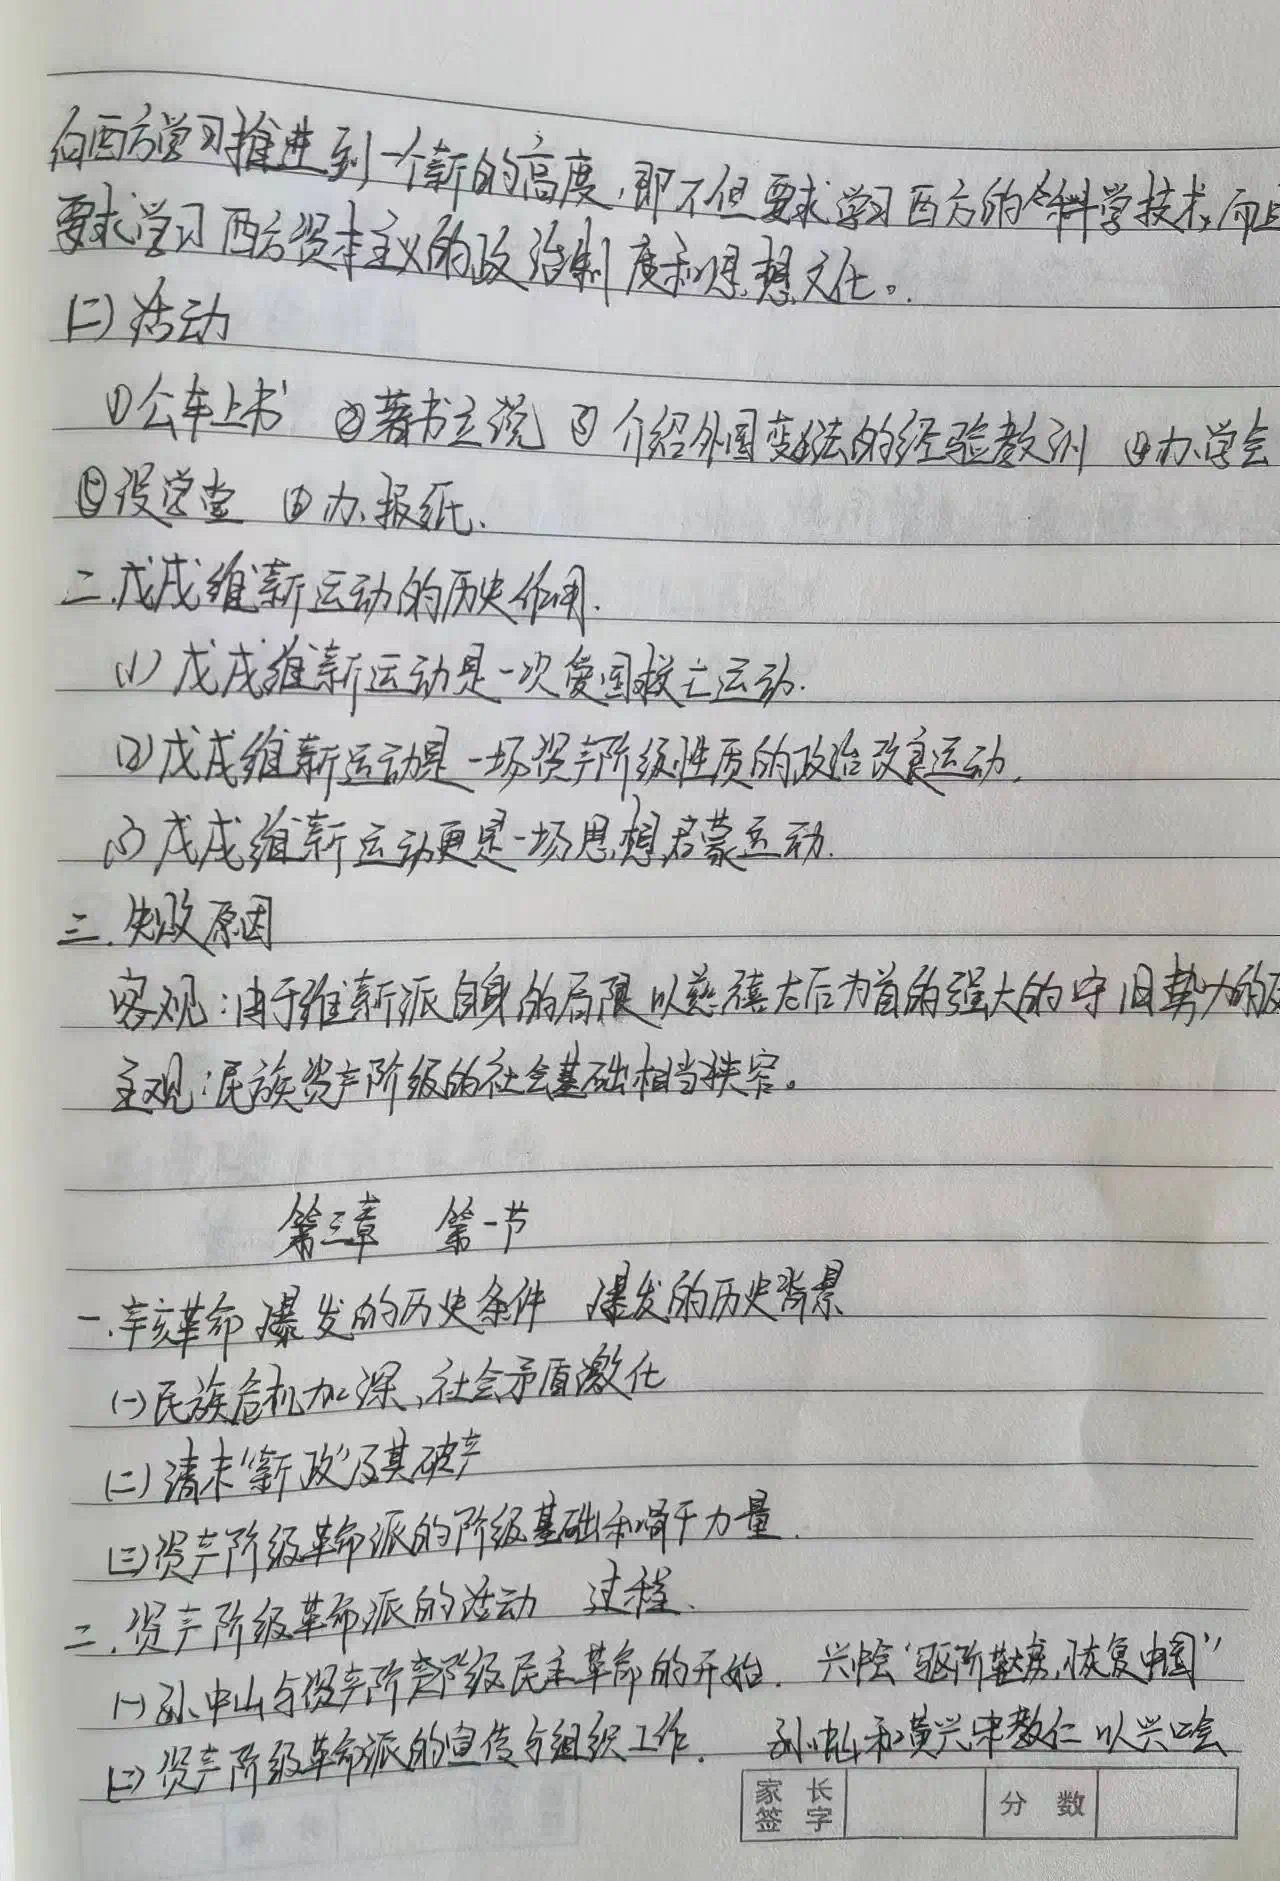 向西方学习推进到一个新的高度,即不但要求学习西方的科学技术,而且
要求学习西方资本主义的政治制度和思想文化。
(二)活动
①公车上书 ②著书立说 ③介绍外国变法的经验教训 ④办学会
⑤设学堂 ⑥办报纸.
二.戊戌维新运动的历史作用.
(1)戊戌维新运动是一次爱国救亡运动.
(2)戊戌维新运动是一场资产阶级性质的政治改良运动.
(3)戊戌维新运动更是一场思想启蒙运动.
三.失败原因
客观:由于维新派自身的局限以慈禧太后为首的强大的守旧势力的反
主观:民族资产阶级的社会基础相当狭窄。
第三章 第一节
一.辛亥革命爆发的历史条件 爆发的历史背景
(一)民族危机加深,社会矛盾激化
(二)清末"新政"及其破产
(三)资产阶级革命派的阶级基础和骨干力量.
二.资产阶级革命派的活动 过程.
(一)孙中山与资产阶级民主革命的开始. 兴中会"驱除鞑虏,恢复中国"
(二)资产阶级革命派的宣传与组织工作. 孙中山和黄兴宋教仁以兴中会
家长签字 分数